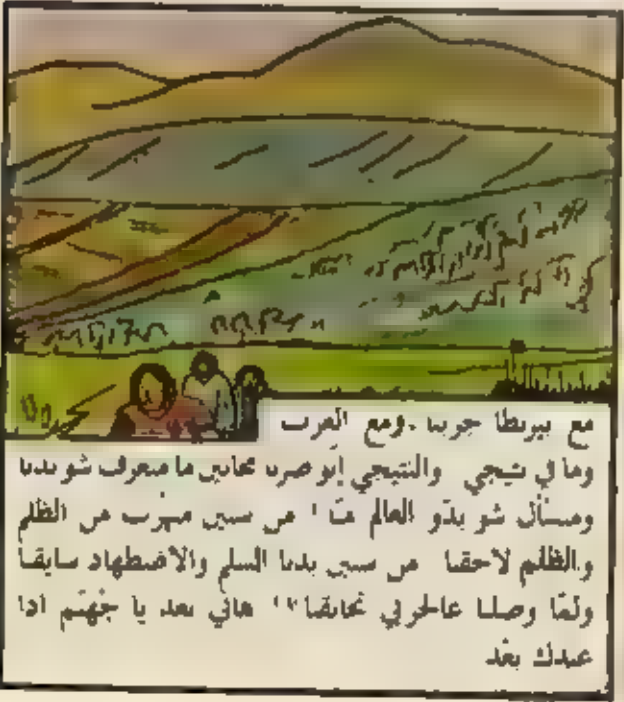 مع بيريطا جربنا . ومع العرب
وما في نتيجي والنتيجي إنو صرنا مجانين ما منعرف شو بدنا
ومنسأل شو بدّو العالم منّا من سنين منهرب من الظلم
والظلم لاحقنا من سنين بدنا السلم والاضطهاد سايقنا
ولمّا وصلنا عالحربي هاتي بعد يا جهنّم اذا
عندك بعد